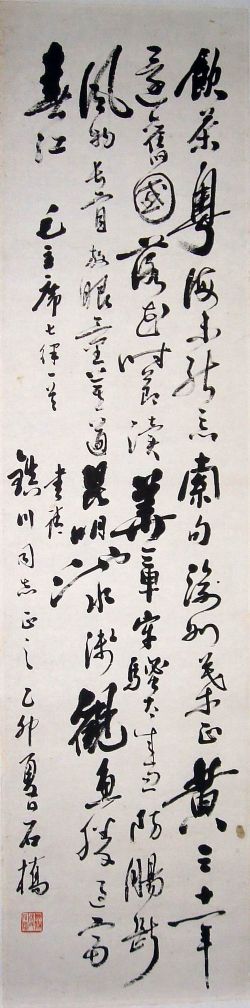 飲茶粵海未能忘索句渝州葉正黄三十一年
還舊國落花时節讀華章牢騷太盛防腸斷
風物長宜放眼量莫道昆明池水淺觀魚勝過富
春江 毛主席七律一首 書請
川同志正之 乙卯夏日石橋